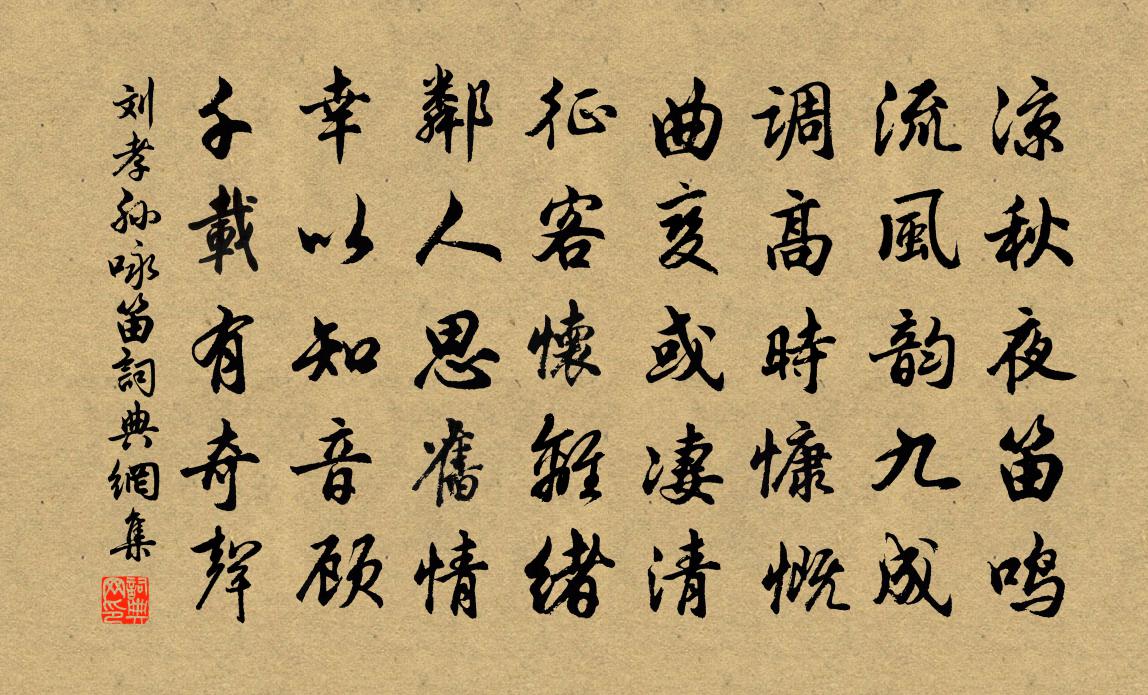 凉秋夜笛鸣
流風韵九成
调高時慷慨
曲变或凄清
征客懷離緒
鄰人思舊情
幸以知音顾
千載有奇聲
刘孝孙咏笛詞典網集
詞典网印